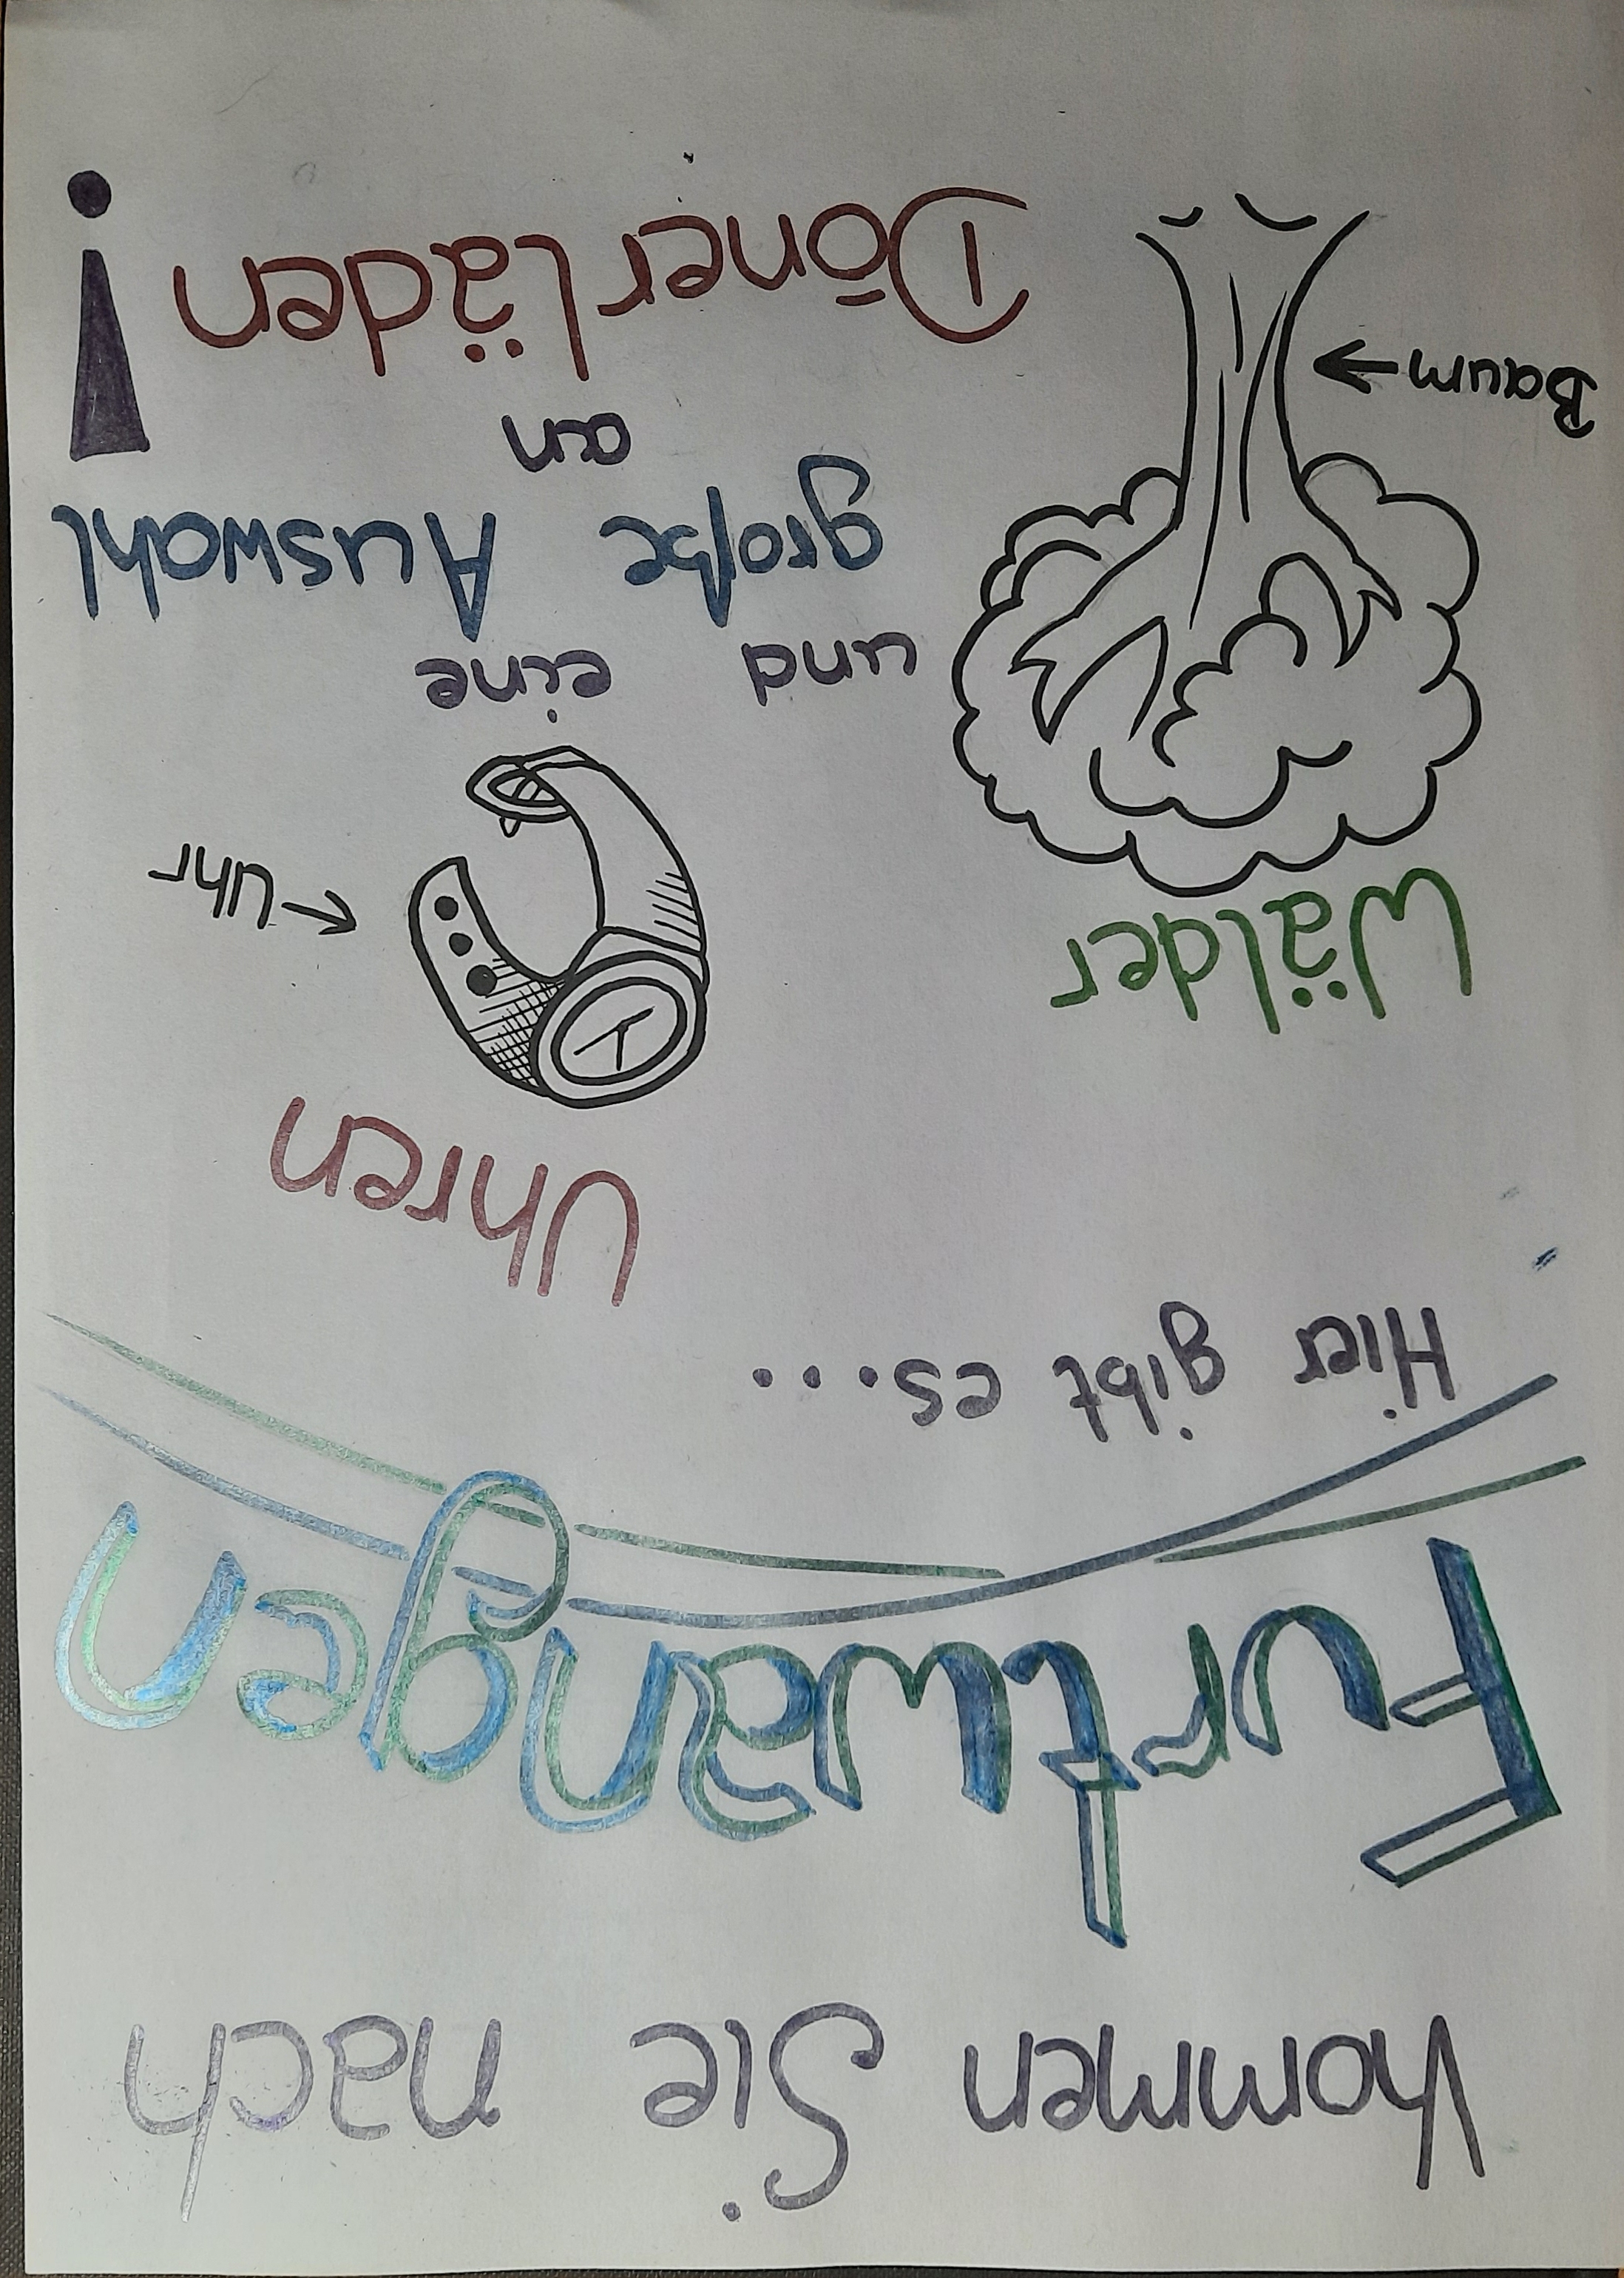 Kommen Sie nach
Furtwangen
Hier gibt es...
Uhren
← Uhr
Wälder
Baum →
und eine
große Auswahl
an
Dönerläden!